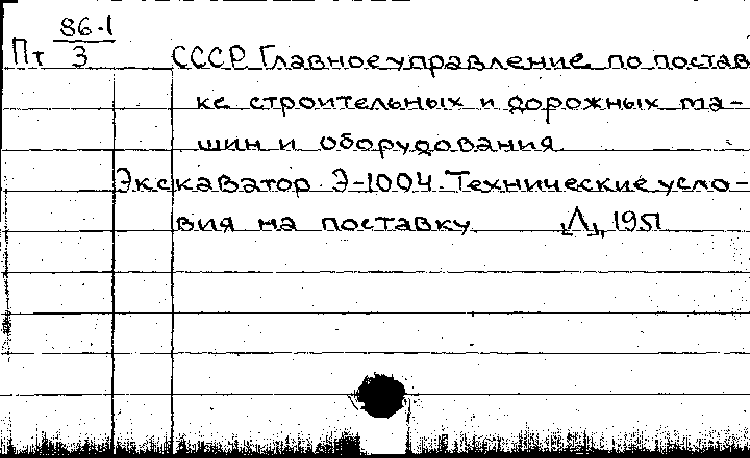 86.1
Пт 3 СССР Главное управление по постав
ке строительных и дорожных ма-
шин и оборудования.
Экскаватор Э-1004. Технические усло-
вия на поставку. Л., 1951